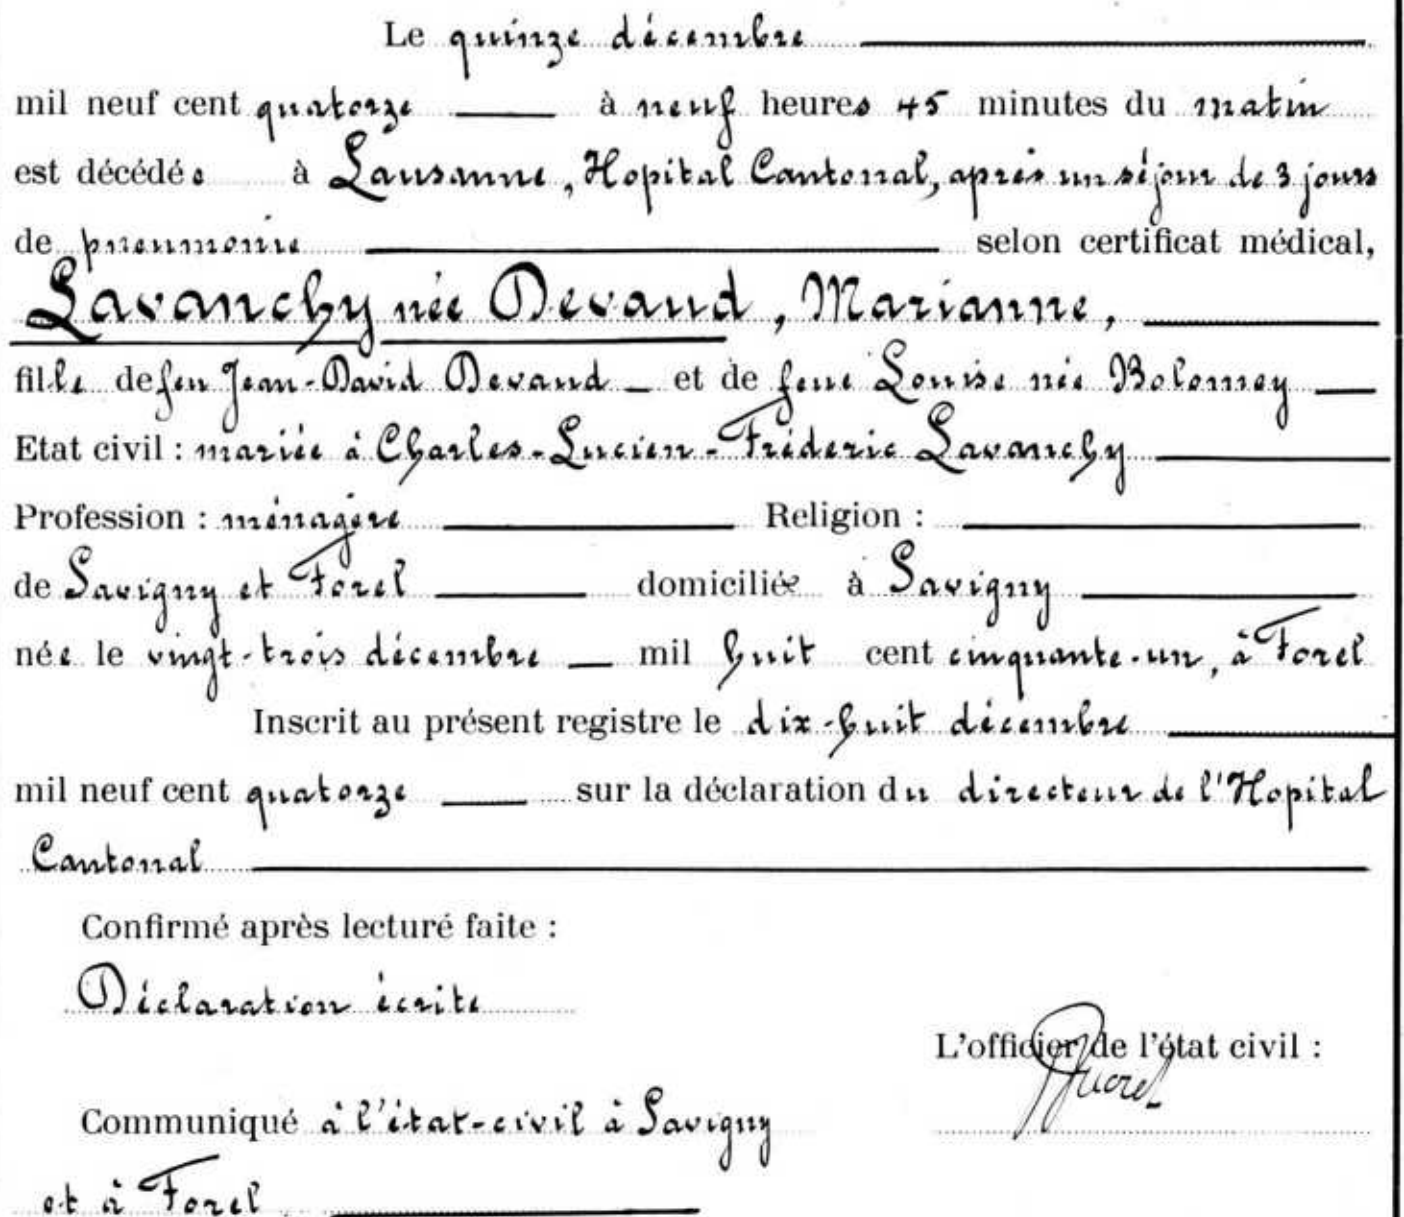 Le quinze décembre
mil neuf cent quatorze à neuf heures 45 minutes du matin
est décédée à Lausanne, Hopital Cantonal, après un séjour de 3 jours
de pneumonie selon certificat médical,
Lavanchy née Devaud, Marianne,
fille de feu Jean-David Devaud et de feue Louise née Bolomey
Etat civil : mariée à Charles-Lucien-Fréderic Lavanchy
Profession : ménagère Religion :
de Savigny et Forel domiciliée à Savigny
née le vingt-trois décembre mil huit cent cinquante-un, à Forel
Inscrit au présent registre le dix-huit décembre
mil neuf cent quatorze sur la déclaration du directeur de l'Hopital
Cantonal
Confirmé après lecturé faite :
Déclaration écrite
L'officier de l'état civil :
Communiqué à l'état-civil à Savigny
et à Forel.